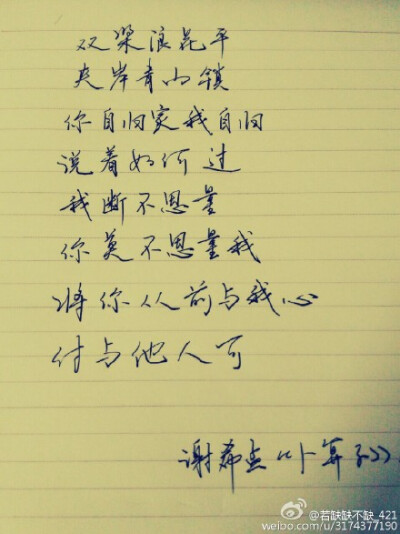 双桨浪花平
夹岸青山锁
你自归家我自归
说着如何过
我断不思量
你莫不思量我
将你从前与我心
付与他人可
谢希孟《卜算子》
@若缺缺不缺_421
weibo.com/u/3174377190